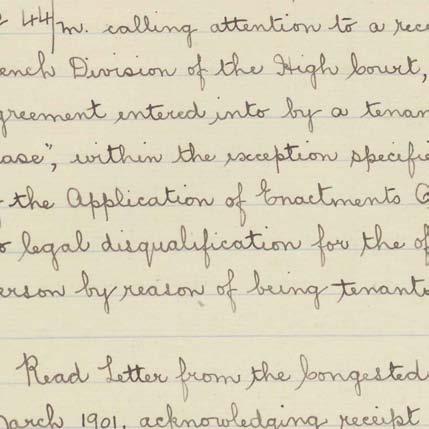 44/m. calling attention to a rece
ench Division of the High Court,
greement entered into by a tenan
ase", within the exception specifie
the Application of Enactments O
o legal disqualification for the of
erson by reason of being tenants
Read Letter from the Congested
March 1901, acknowledging receipt